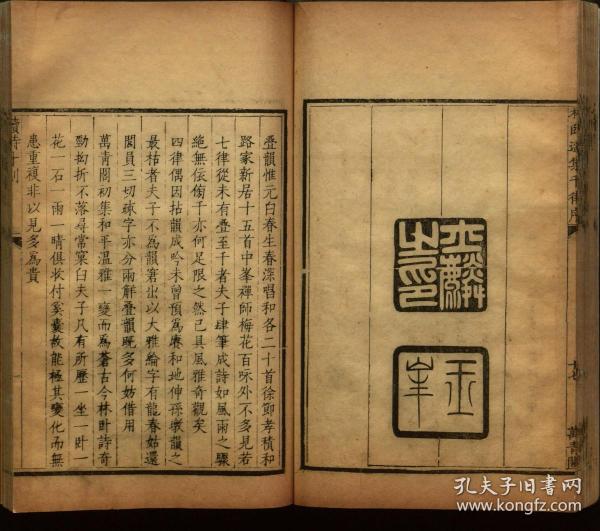 萬青閣
疊韻惟元白春生春深唱和各二十首徐節孝積和
路家新居十五首中峯禪師梅花百咏外不多見若
七律從未有疊至千者夫子肆筆成詩如風雨之驟
絶無依傍千亦何足限之然已具風雅奇觀矣
四律偶因拈韻成吟未曾預為賡和地伸孫墩韻之
最枯者夫子不為韻窘出以大雅綸字有龍春姑還
關員三切疎字亦分兩解疊韻既多何妨借用
萬青閣初集和平溫雅一變而為蒼古今林卧詩奇
勁拗折不落尋常窠臼夫子凡有所歷一坐一卧一
花一石一雨一晴俱收付奚囊故能極其變化而無
患重複非以見多為貴
讀詩十則
孔夫子旧书网
kongfz.com